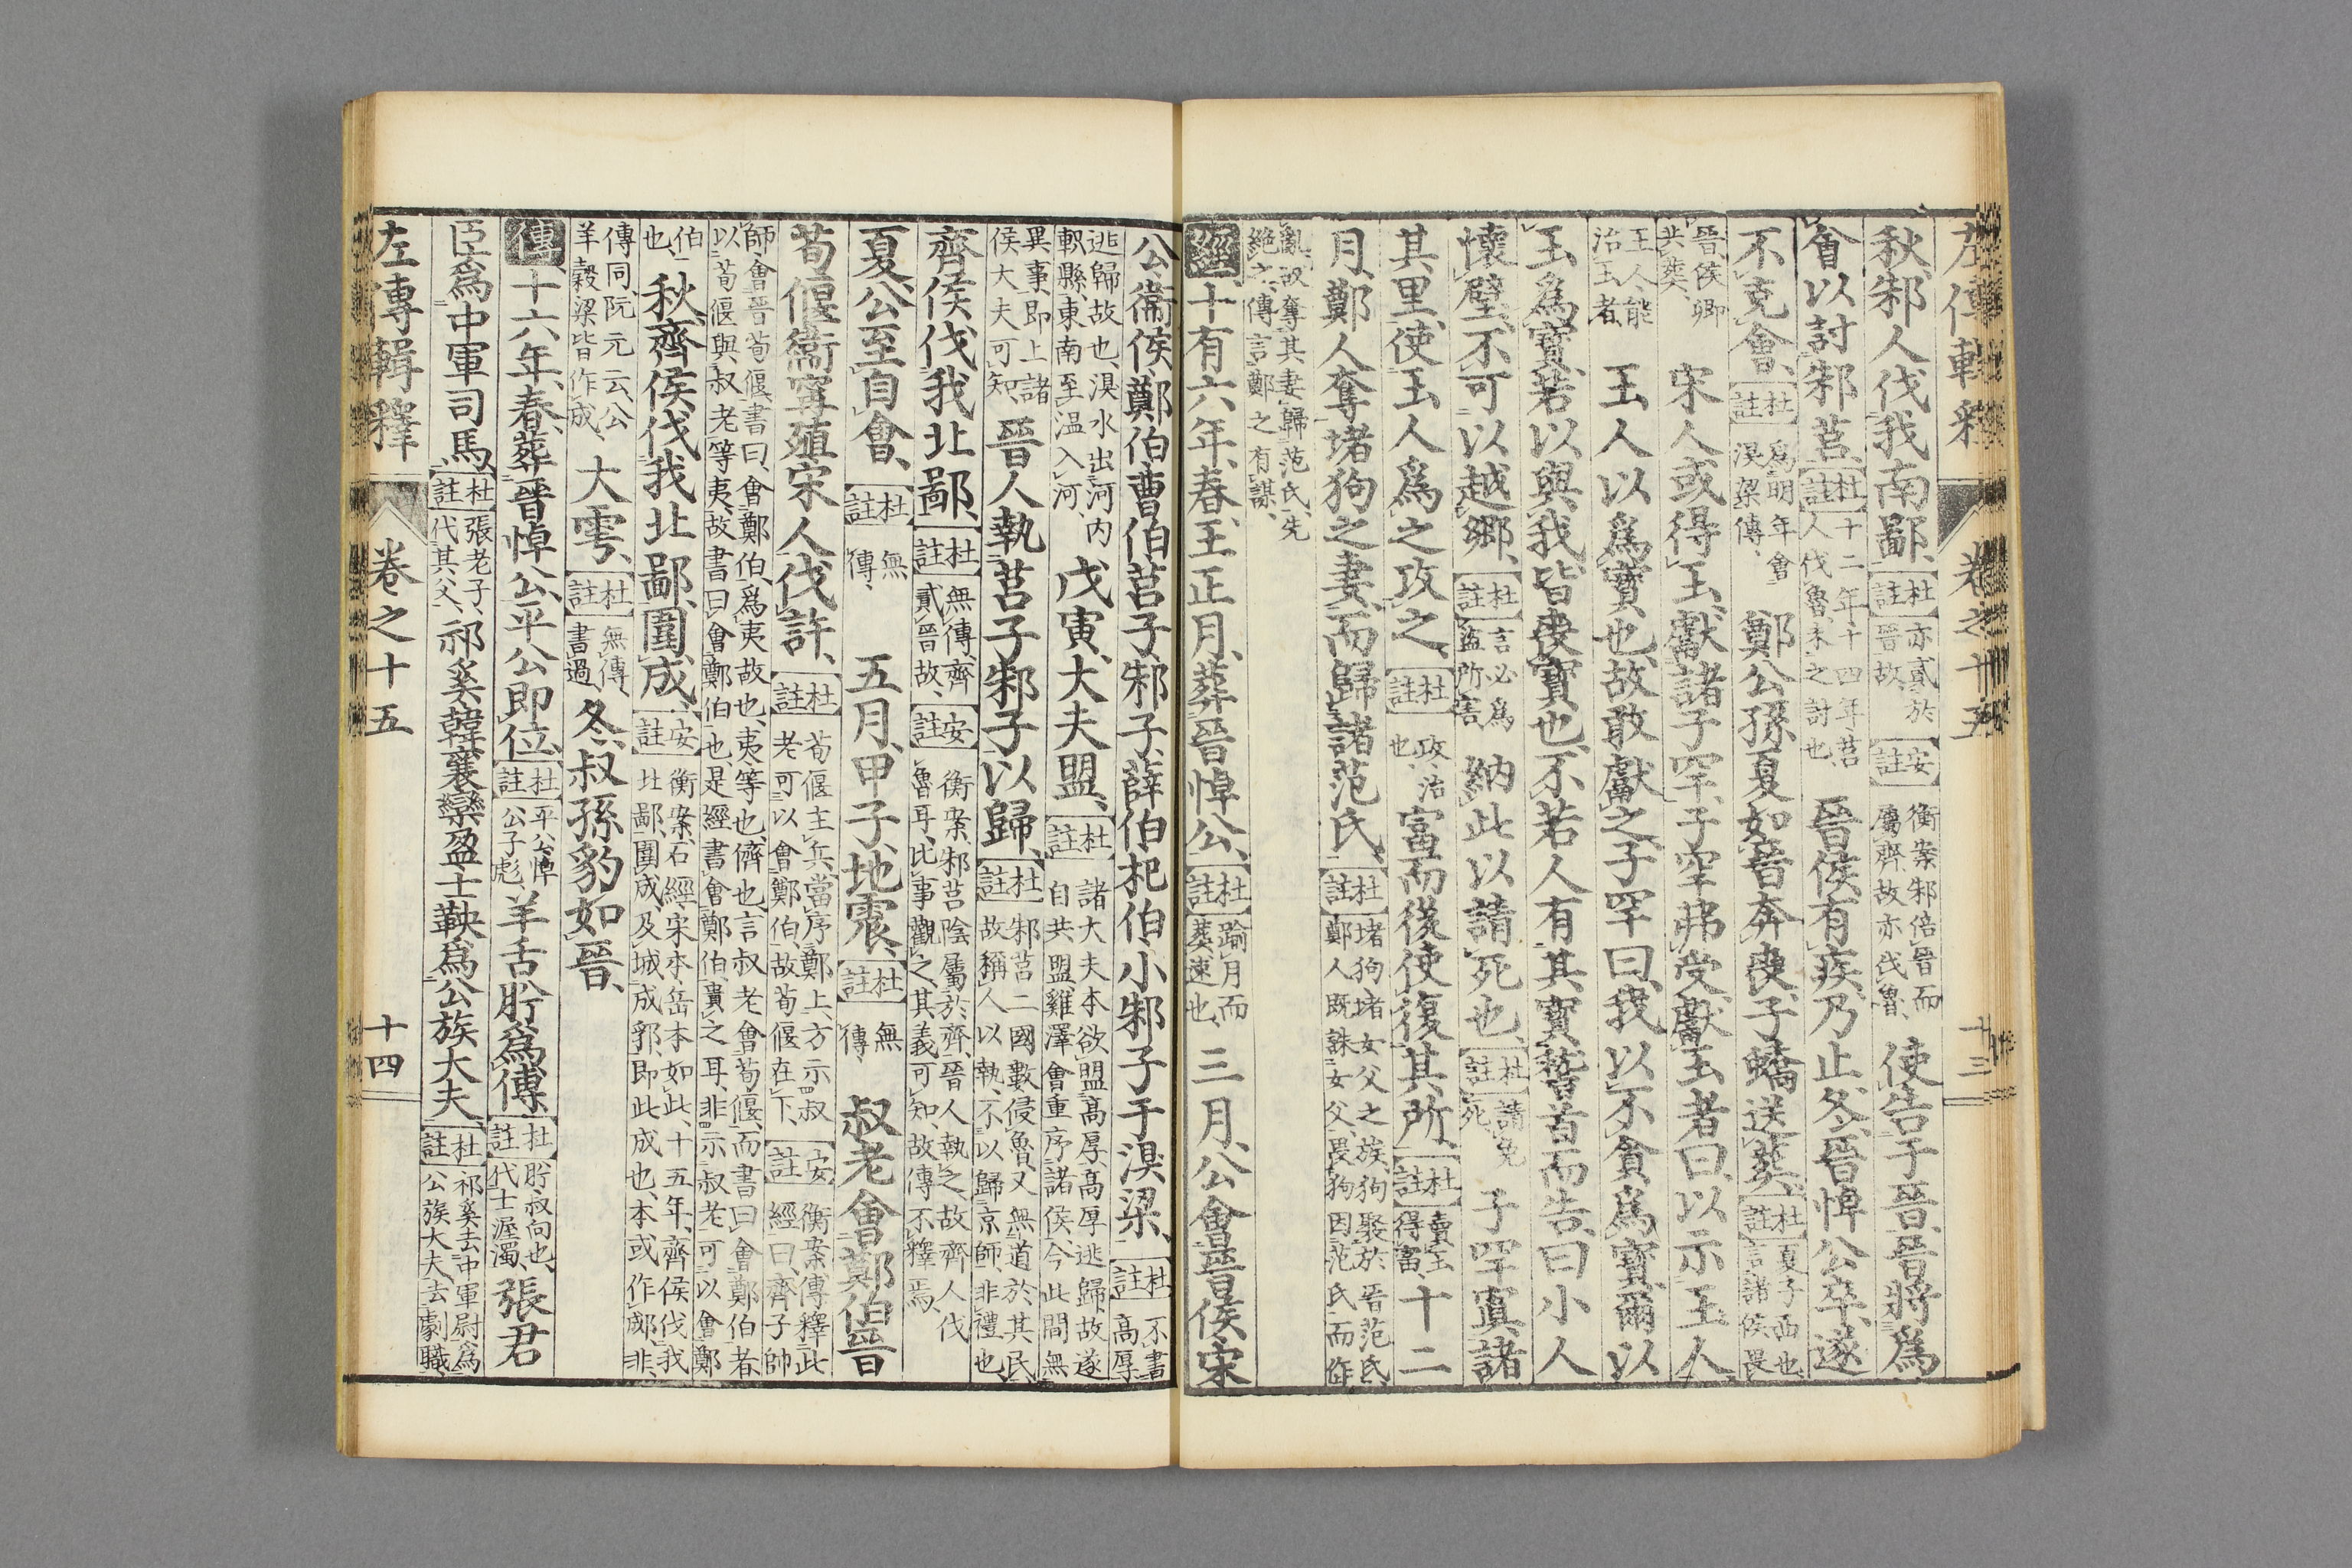 左傳輯釋 卷之十五 十三
秋、邾人伐我南鄙、杜註亦貳於晉故、安註衡案邾倍晉而屬齊、故亦伐魯、使告于晉、晉將爲
會以討邾莒、杜註十二年十四年莒人伐魯、未之討也、晉侯有疾、乃止、冬、晉悼公卒、遂
不克會、杜註爲明年會湨梁傳、鄭公孫夏如晉奔喪、子蟜送葬、杜註夏子西也、言諸侯畏
晉、侯卿共葬、宋人或得玉、獻諸子罕、子罕弗受、獻玉者曰、以示玉人、
玉人、能治玉者、玉人以爲寶也、故敢獻之、子罕曰、我以不貪爲寶、爾以
玉爲寶、若以與我、皆喪寶也、不若人有其寶、稽首而告、曰小人
懷璧、不可以越鄉、杜註言必爲盜所害、納此以請死也、杜註請免死、子罕寘諸
其里、使玉人爲之攻之、杜註攻、治也、富而後使復其所、杜註賣玉得富、十二
月、鄭人奪堵狗之妻、而歸諸范氏、杜註堵狗、堵女父之族、狗娶於晉范氏、鄭人既誅女父、畏狗因范氏而作
亂、故奪其妻歸范氏、先絶之、傳言鄭之有謀、
經十有六年、春、王正月、葬晉悼公、杜註踰月而葬、速也、三月、公會晉侯宋
公衞侯鄭伯曹伯莒子邾子薛伯杞伯小邾子于湨梁、杜註不書高厚
逃歸故也、湨水出河内軹縣、東南至温入河、戊寅、大夫盟、杜註諸大夫本欲盟高厚、高厚逃歸、故遂自共盟、雞澤會重序諸侯、今此間無
異事、即上諸侯大夫可知、晉人執莒子邾子以歸、杜註邾莒二國數侵魯、又無道於其民、故稱人以執、不以歸京師、非禮也
齊侯伐我北鄙、杜註無傳、齊貳晉故、安註衡案、邾莒陰屬於齊、晉人執之、故齊人伐魯耳、比事觀之、其義可知、故傳不釋焉、
夏、公至自會、杜註無傳、五月、甲子、地震、杜註無傳、叔老會鄭伯晉
荀偃衞甯殖宋人伐許、杜註荀偃主兵、當序鄭上、方示叔老可以會鄭伯、故荀偃在下、安註衡案、傳釋此經曰、齊子帥
師會晉荀偃、書曰、會鄭伯、爲夷故也、夷、等也、儕也、言叔老會荀偃、而書曰會鄭伯者、以荀偃與叔老等夷、故書曰會鄭伯也、是經書會鄭伯、貴之耳、非示叔老可以會鄭
伯也、秋、齊侯伐我北鄙、圍成、安註衡案、石經宋本岳本如此、十五年、齊侯伐我北鄙、圍成、及城成郛、即此成也、本或作郕、非、
傳同、阮元云、公羊穀梁皆作成、大雩、杜註無傳、書過、冬、叔孫豹如晉、
傳十六年、春、葬晉悼公、平公即位、杜註平公、悼公子彪、羊舌肸爲傅、杜註肸、叔向也、代士渥濁、張君
臣爲中軍司馬、杜註張老子、代其父、祁奚韓襄欒盈士鞅爲公族大夫、杜註祁奚去中軍尉爲公族大夫、去劇職
左傳輯釋 卷之十五 十四